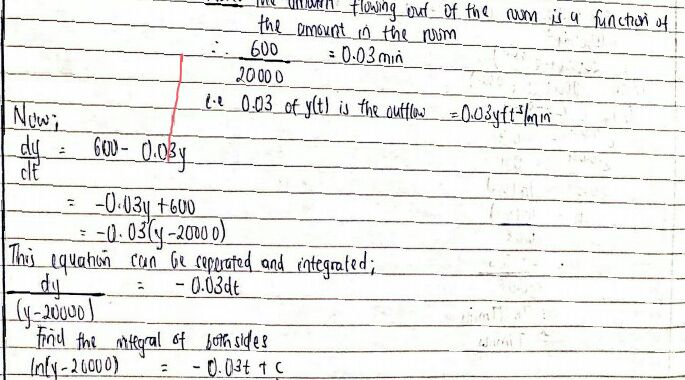 the amount flowing out of the room is a function of
the amount in the room
∴ 600 / 20000 = 0.03 min
i.e 0.03 of y(t) is the outflow = 0.03y ft³/min
Now;
dy/dt = 600 - 0.03y
= -0.03y + 600
= -0.03(y - 20000)
This equation can be seperated and integrated;
dy / (y - 20000) = - 0.03dt
Find the integral of both sides
ln(y - 20000) = - 0.03t + c